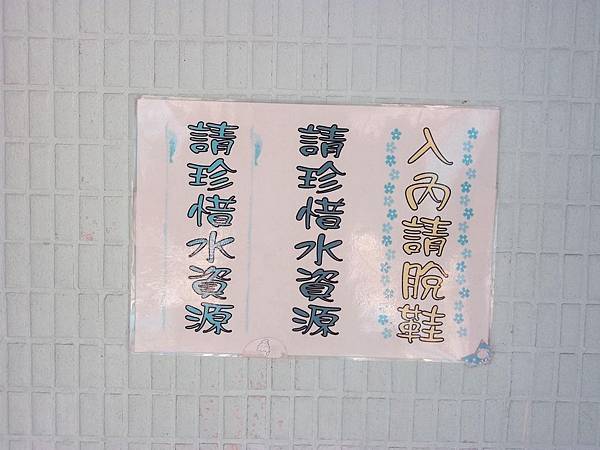 入內請脫鞋
請珍惜水資源
請珍惜水資源